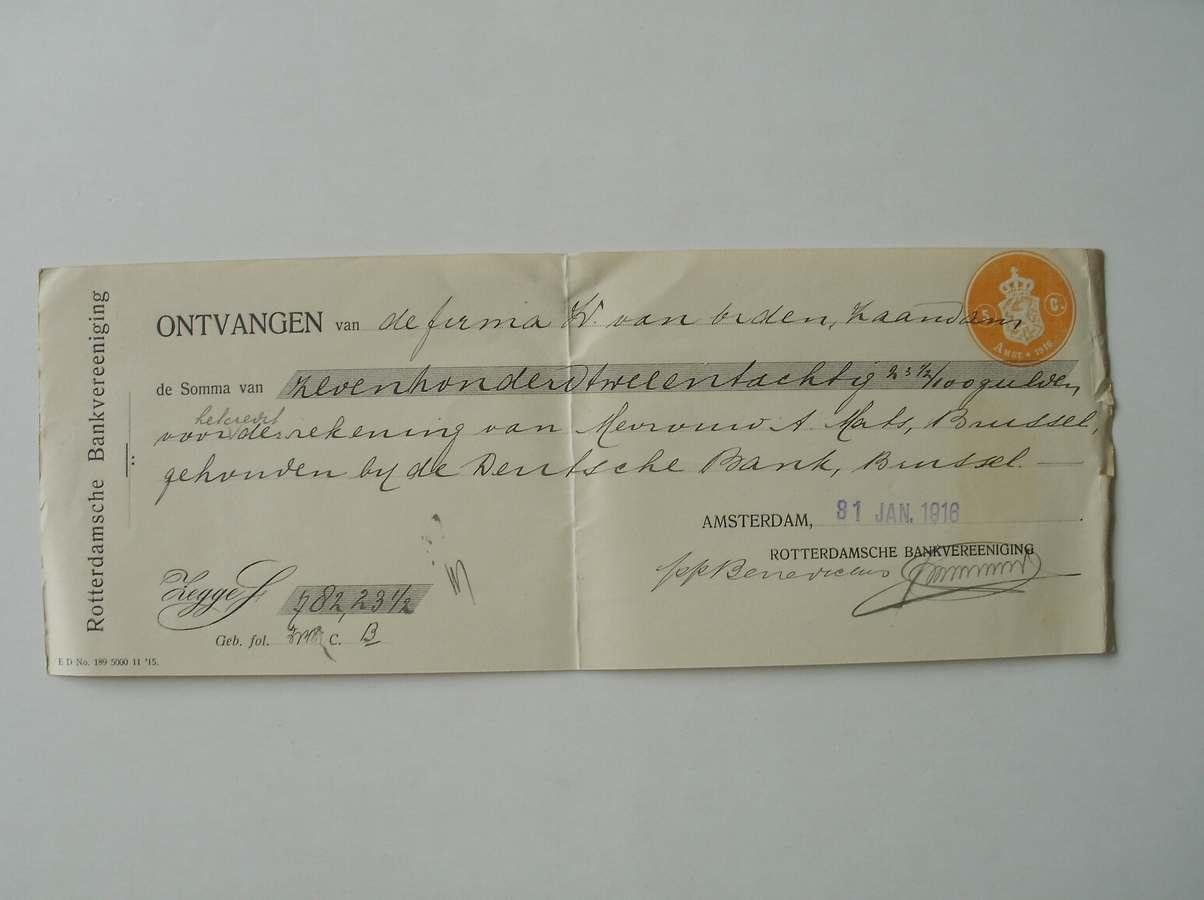 Rotterdamsche Bankvereeniging
ONTVANGEN van de firma W. van orden, Zaandam
5 C.
AMST. * 1916
de Somma van zevenhonderdtweeentachtig 23½/100 gulden,
het credit
voor de rekening van Mevrouw A. Mats, Brussel,
gehouden bij de Deutsche Bank, Brussel.
AMSTERDAM, 31 JAN. 1916
ROTTERDAMSCHE BANKVEREENIGING
pp Benedictus
Zegge f 782,23½
Geb. fol. C. B
E D No. 189 5000 11 '15.